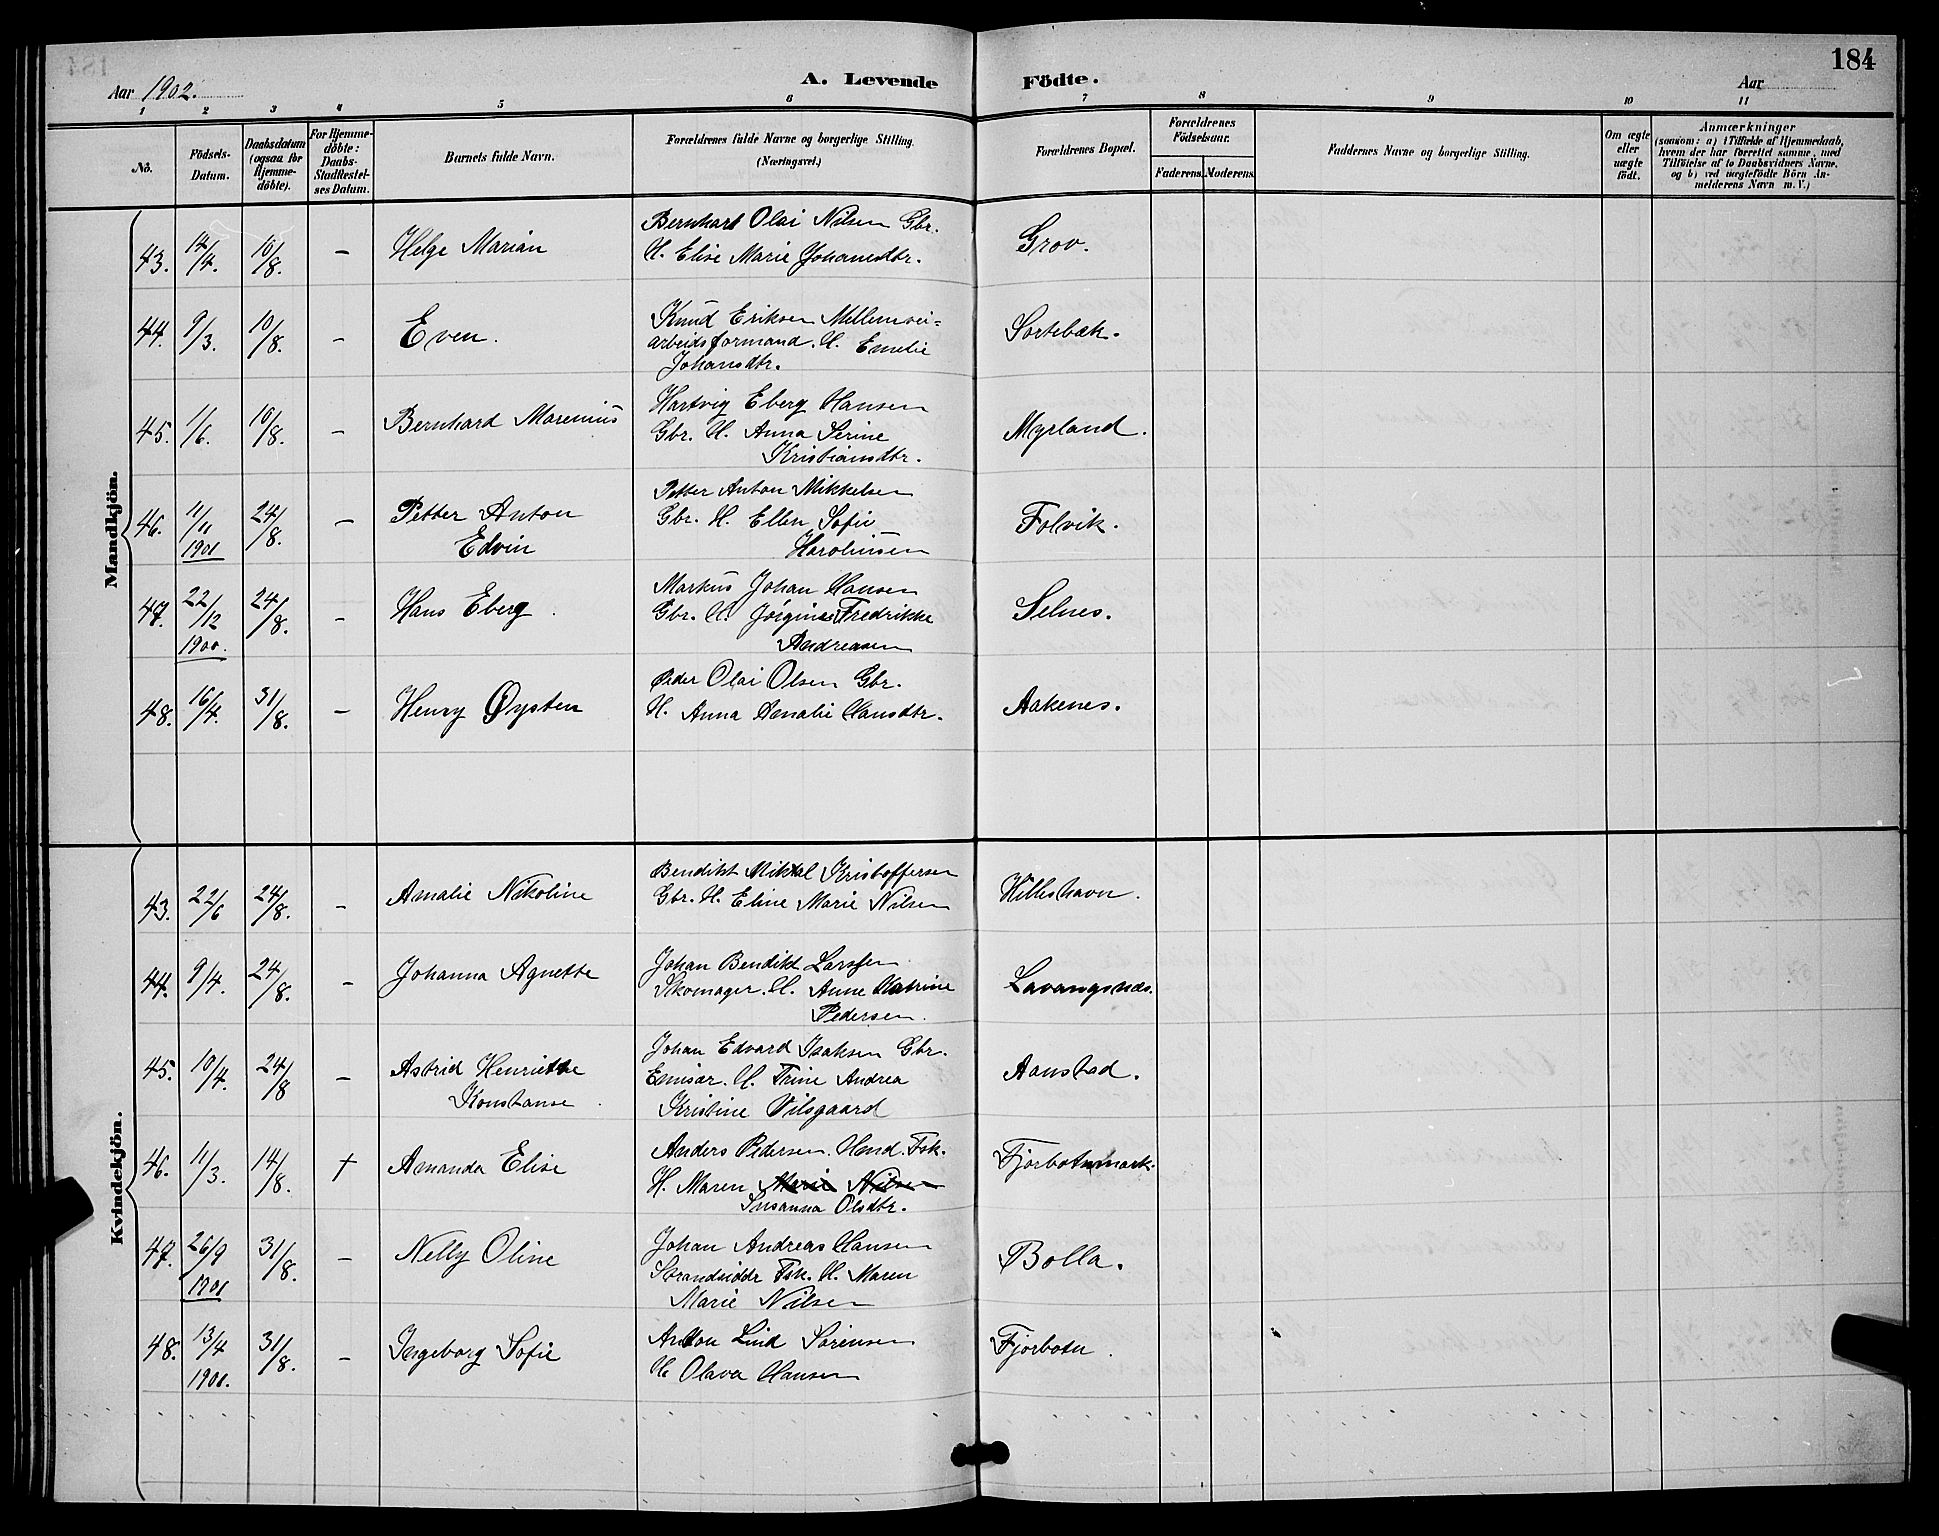 184
Aar 1902.
A. Levende Födte.
Aar
1 2 3 4 5 6 7 8 9 10 11
No.
Födsels-Datum.
Daabsdatum (ogsaa for Hjemme-döbte).
For Hjemme-döbte: Daabs-Stadfæstel-ses Datum.
Barnets fulde Navn.
Forældrenes fulde Navne og borgerlige Stilling. (Næringsvei.)
Forældrenes Bopæl.
Forældrenes Födselsaar.
Faderens. Moderens.
Faddernes Navne og borgerlige Stilling.
Om ægte eller uægte födt.
Anmærkninger
(saasom: a) i Tilfælde af Hjemmedaab,
hvem der har forrettet samme, med
Tilföielse af to Daabsvidners Navne,
og b) ved uægtefödte Börn An-
melderens Navn m. V.)
Mandkjön.
43. 14/4. 10/8. – Helge Marian
Bernhart Olai Nilsen Gbr.
H. Elise Marie Johansdtr.
Grov.
44. 9/3. 10/8. – Even.
Knud Eriksen Mellemvei=
arbeidsformand. H. Emelie
Johansdtr.
Sortebæk.
45. 1/6. 10/8. – Bernhard Marenius
Hartvig Eberg Hansen
Gbr. H. Anna Serine
Kristiansdtr.
Myrland.
46. 11/11 1901 24/8. – Petter Anton
Edvin
Petter Anton Mikkelsen
Gbr. H. Ellen Sofie
Folvik.
47. 22/12 1900. 24/8. – Hans Eberg.
Markus Johan Hansen
Gbr. H. Jörgine Fredrikke
Andreasen
Selnes.
48. 16/4. 31/8. – Henry Øysten
Peder Olai Olsen Gbr.
H. Anna Amalie Hansdtr.
Aakenes.
Kvindekjön.
43. 22/6 24/8. – Amalie Nikoline
Bendikt Mikal Kristoffersen
Gbr. H. Eline Marie Nilsen
Hilleshavn.
44. 9/4. 24/8. – Johanna Agnette
Johan Bendikt Larssen
Skomager. H. Anne Katrine
Pedersen.
Lavangsnæs.
45. 10/4. 24/8 – Astrid Henriette
Konstanse.
Johan Edvard Isaksen Gbr.
Emisær. H. Trine Andrea
Kristine Vilsgaard
Aanstad.
46. 11/3. 14/8. † Amanda Elise
Anders Pedersen. Hmd. Fsk.
H. Maren Marie Nilsen
Susanna Olsdtr.
Fjorbotnmark.
47. 26/9 1901 31/8. – Nelly Oline
Johan Andreas Hansen
Strandsiddr Fsk. H. Maren
Marie Nilsen
Bolla.
48. 13/4 1901. 31/8. – Ingeborg Sofie
Anton Lind Sörensen
H. Olava Hansen
Fjorbotn.